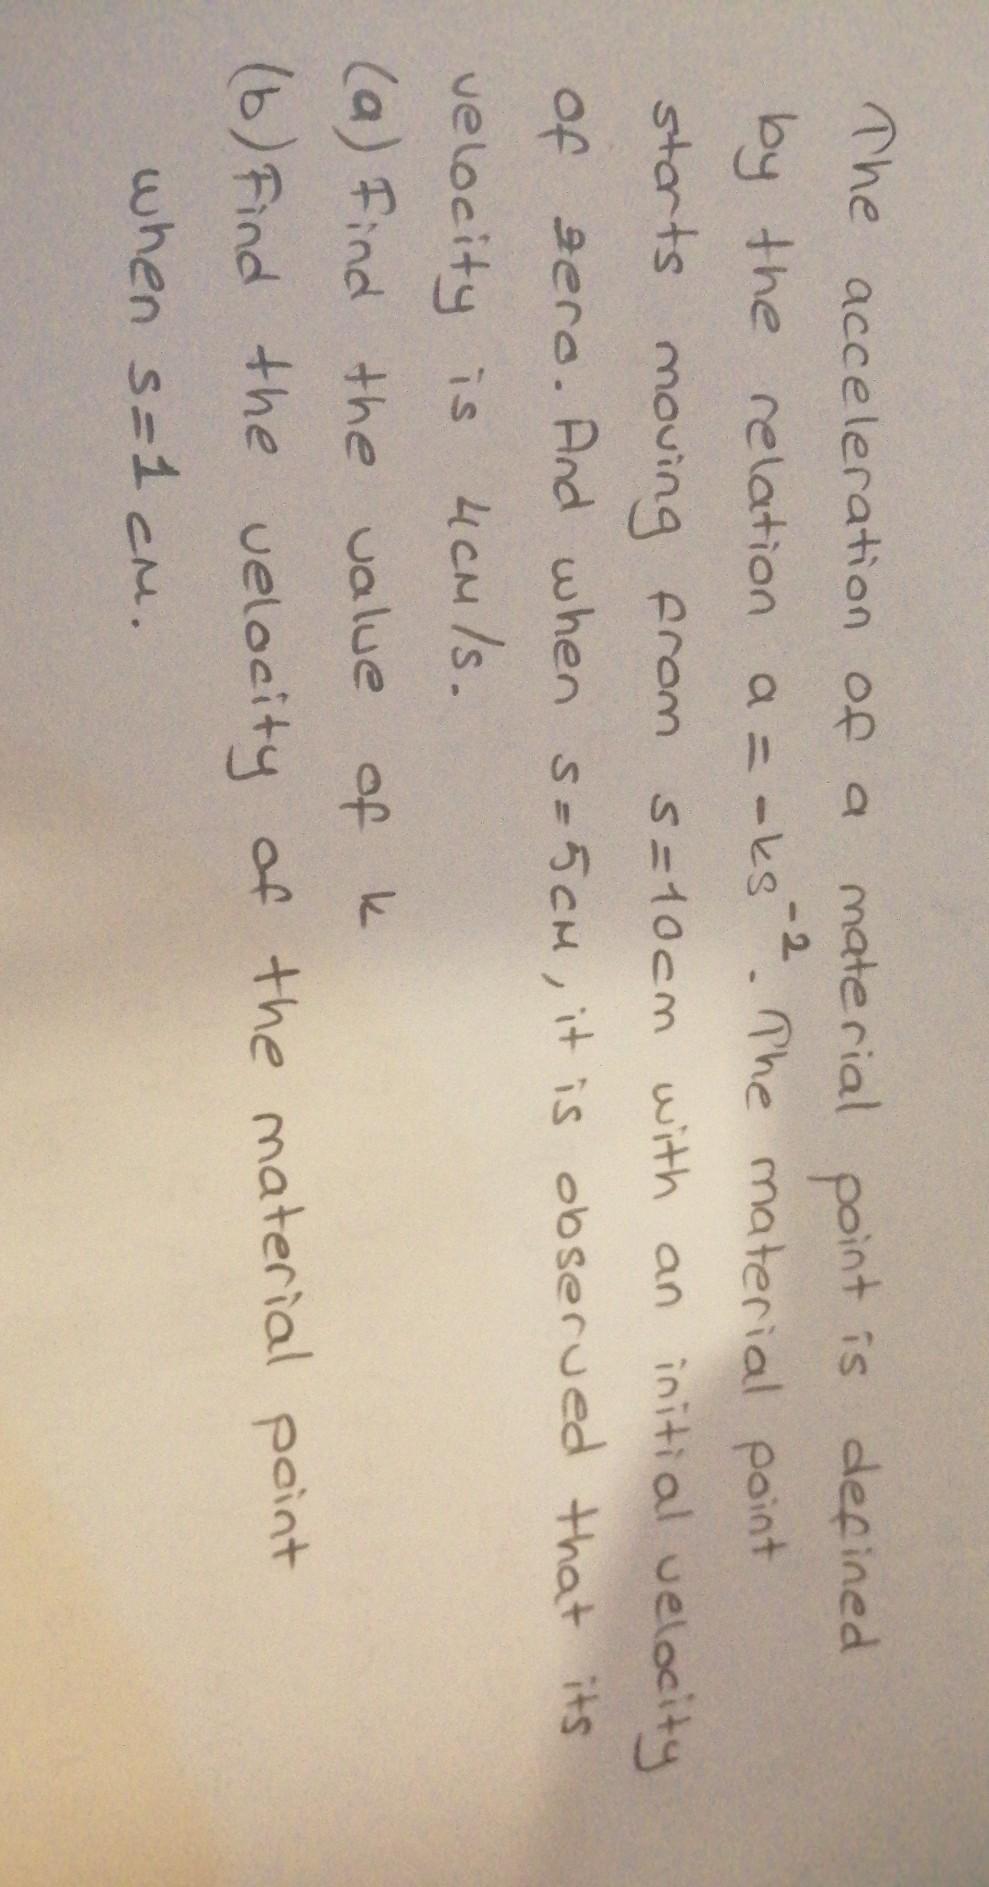 The acceleration of a material point is defined
by the relation a = -ks⁻². The material point
starts moving from s=10cm with an initial velocity
of zero. And when s=5cm, it is observed that its
velocity is 4cm/s.
(a) Find the value of k
(b) Find the velocity of the material point
when s=1cm.